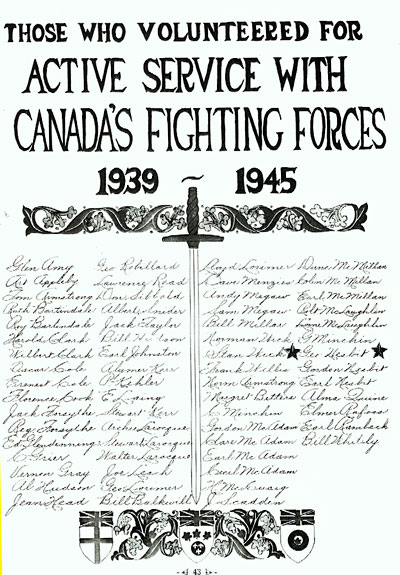 THOSE WHO VOLUNTEERED FOR
ACTIVE SERVICE WITH
CANADA'S FIGHTING FORCES
1939 ~ 1945
Glen Amy
Art Appleby
Tom Armstrong
Ruth Bartindale
Roy Bartindale
Harold Clark
Wilbert Clark
Oscar Cole
Ernest Cole
Florence Cook
Jack Forsythe
Reg. Forsythe
Ed Glendenning
C. Grier
Vernon Gray
Al Hudson
Jean Head
Geo Robillard
Lawrence Read
Don Sibbald
Albert Snider
Jack Taylor
Bill Wilson
Earl Johnston
Alymer Kerr
P. Kohler
E. Laing
Stewart Kerr
Archie Larocque
Stewart Larocque
Walter Larocque
Joe Leach
Geo Lorimer
Bill Balkwill
Lloyd Lorimer
Dave Menzies
Andy Megaw
Sam Megaw
Bill Millar
Norman Wick
Stan Wick ★
Frank Willis
Norm Armstrong
Margret Batters
C. Minchin
Gordon McAdam
Clare McAdam
Earl McAdam
Cecil McAdam
H. McCuaig
J. Scadden
Dune McMillan
Colin McMillan
Earl McMillan
Pat McLaughlin
Lorne McLaughlin
G Minchin
Geo Nesbit ★
Gordon Nesbit
Earl Nesbit
Alma Quine
Elmer
Earl Ramback
Bill Whitely
43